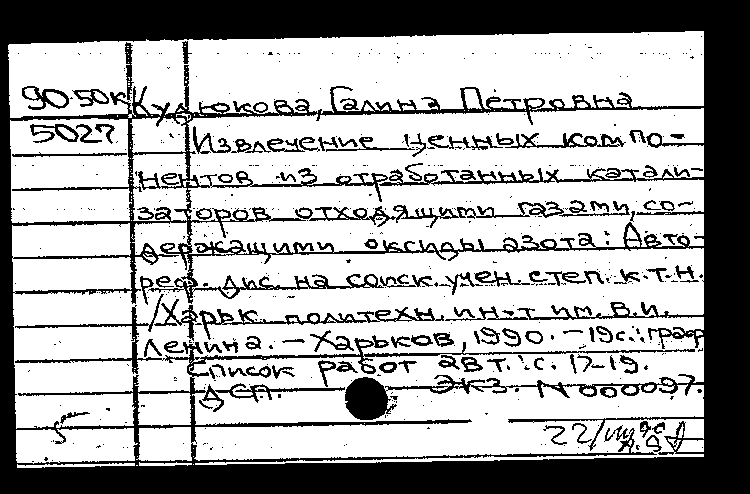 90-50к Кудюкова, Галина Петровна
5027 Извлечение ценных компо-
нентов из отработанных катали-
заторов отходящими газами, со-
держащими оксиды азота: Авто-
реф. дис. на соиск. учен. степ. к.т.н.
/Харьк. политехн. ин-т им. В.И.
Ленина. – Харьков, 1990. – 19с.: граф
Список работ авт.: с. 17-19.
ДСП. Экз. N 000097.
22/